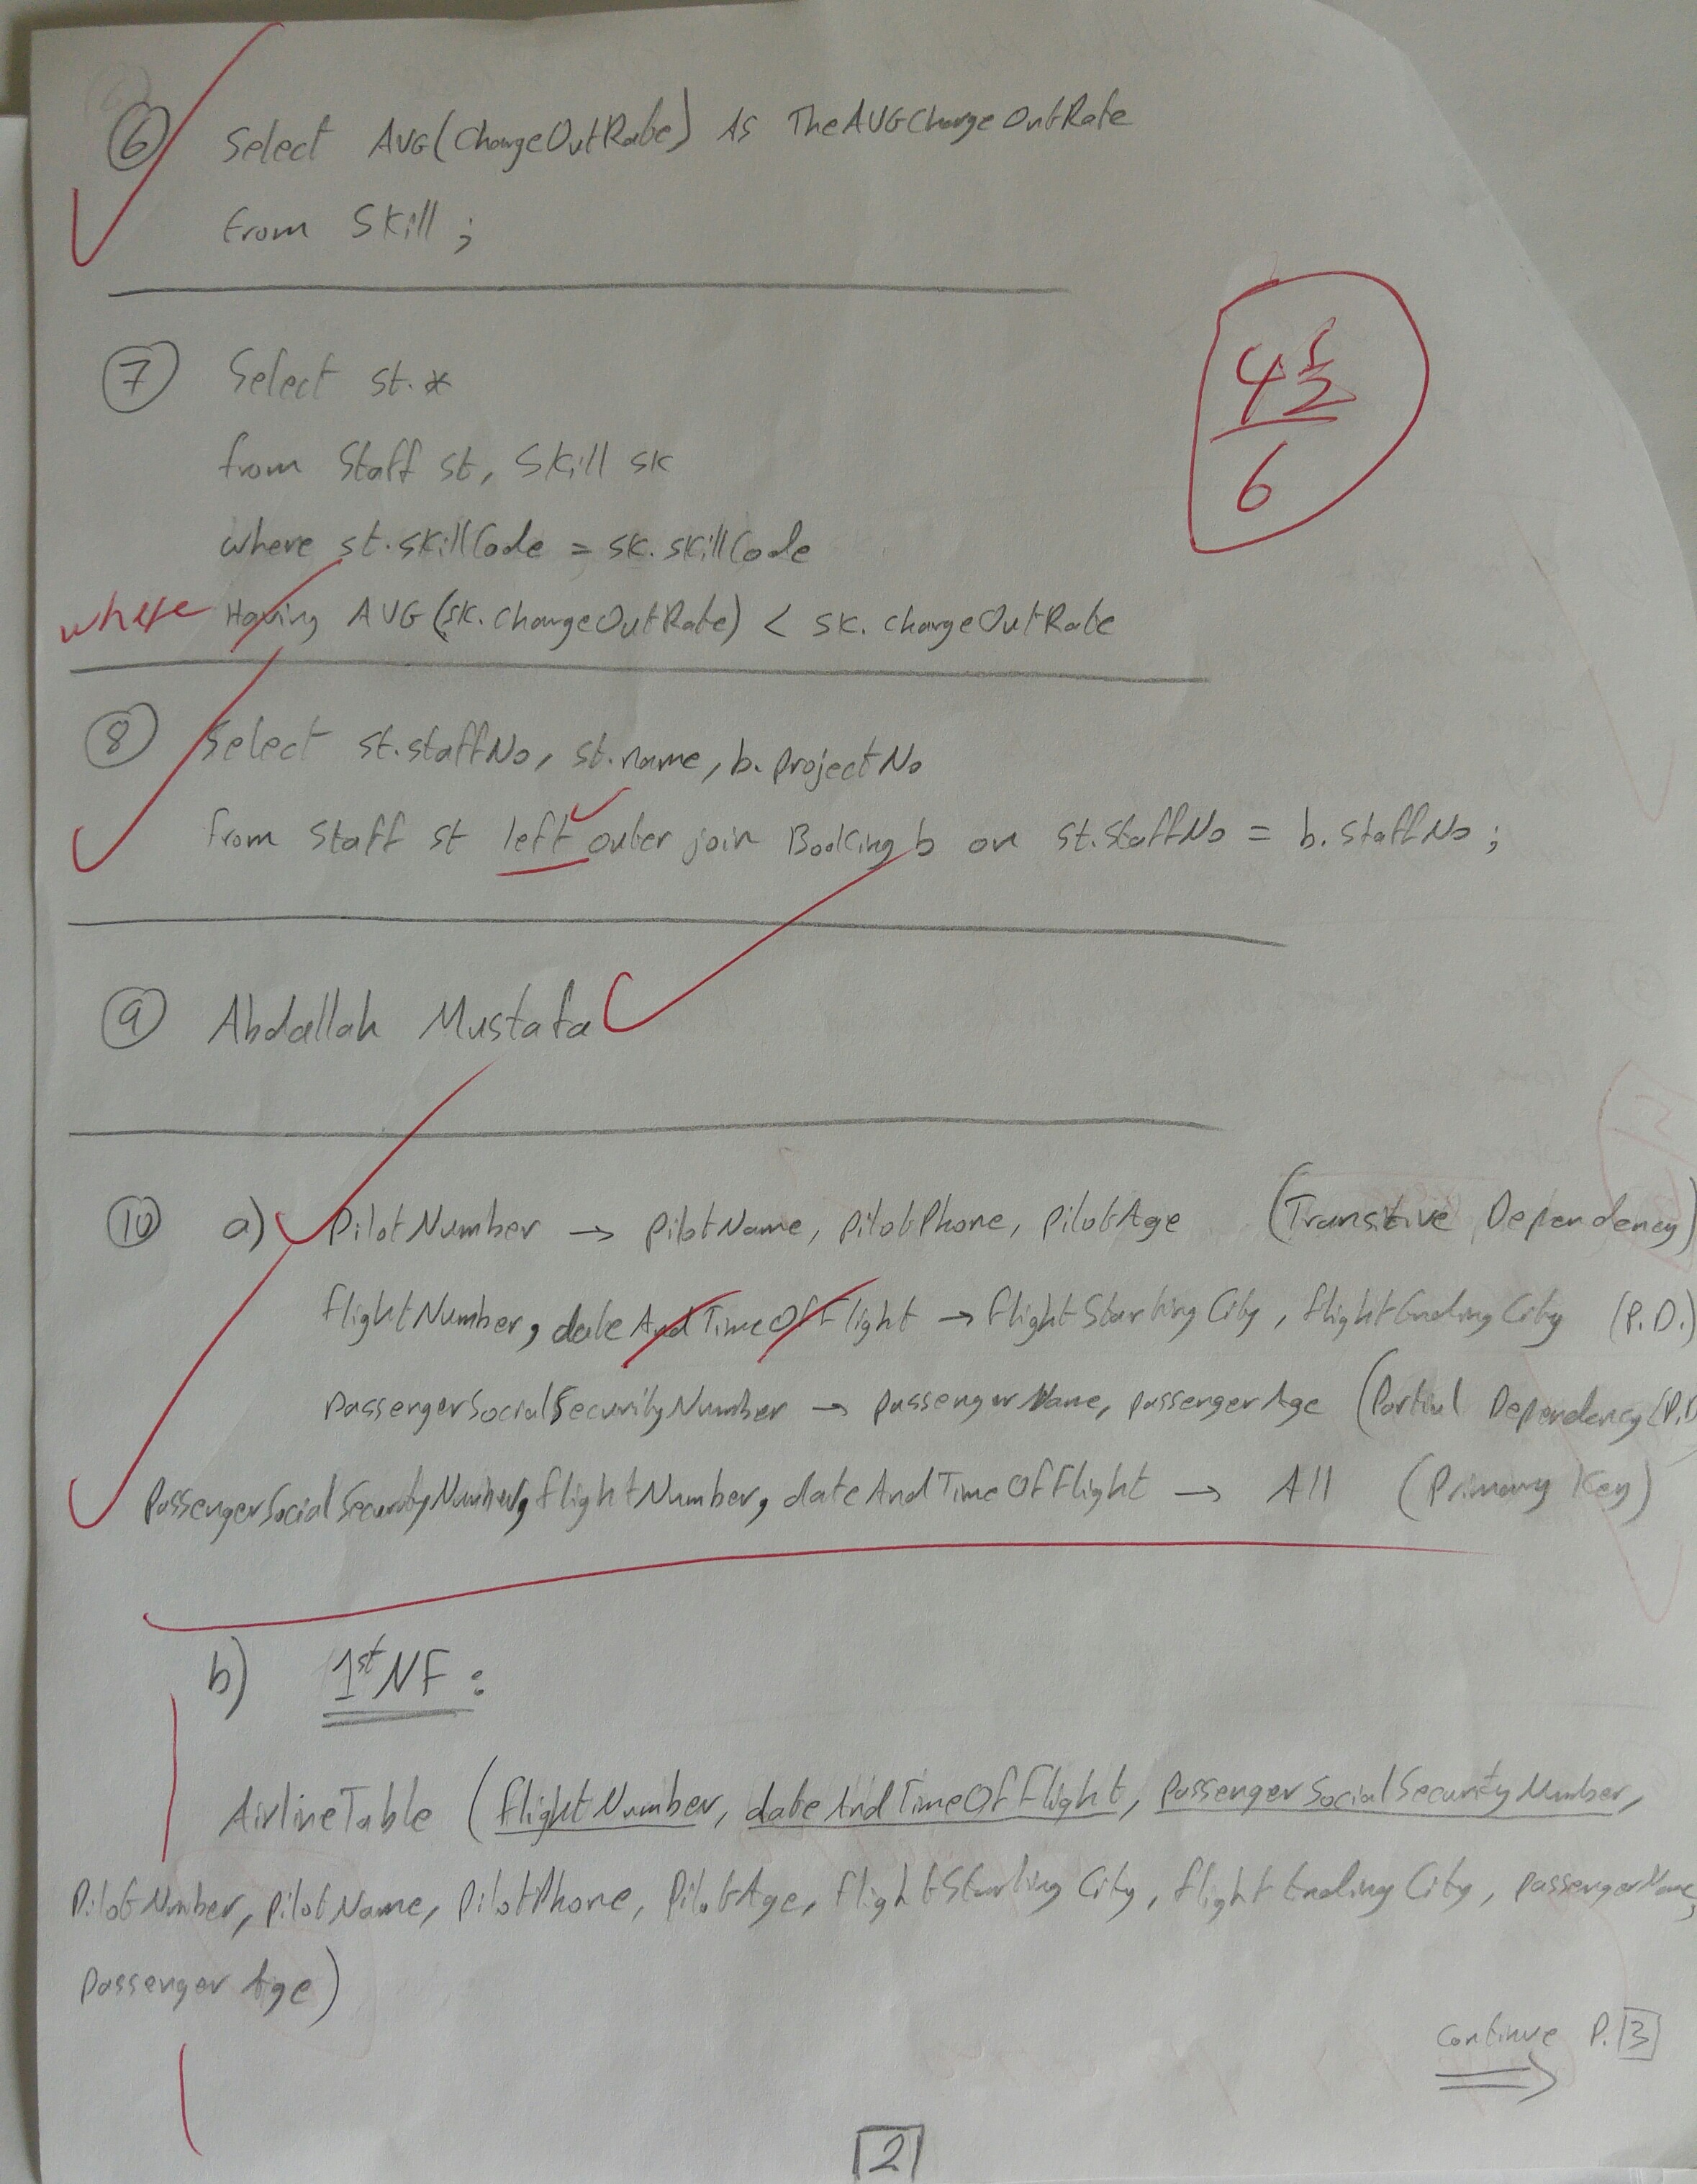 6 Select AVG(ChargeOutRate) As TheAVGChargeOutRate
from Skill ;
7 Select st.*
from Staff st, Skill sk
where st.skillCode = sk.skillCode
where Having AVG(sk.chargeOutRate) < sk.chargeOutRate
4 1/2
6
8 Select st.staffNo, st.name, b.projectNo
from Staff st left outer join Booking b on st.staffNo = b.staffNo ;
9 Abdallah Mustafa
10 a) PilotNumber → pilotName, pilotPhone, pilotAge (Transitive Dependency)
flightNumber, dateAndTimeOfFlight → flightStartingCity, flightEndingCity (P.D.)
passengerSocialSecurityNumber → passengerName, passengerAge (Partial Dependency (P.D
PassengerSocialSecurityNumber, flightNumber, dateAndTimeOfFlight → All (Primary Key)
b) 1st NF :
AirlineTable (flightNumber, dateAndTimeOfFlight, passengerSocialSecurityNumber,
PilotNumber, pilotName, pilotPhone, PilotAge, flightStartingCity, flightEndingCity, passengerName,
passengerAge)
Continue P. 3
2